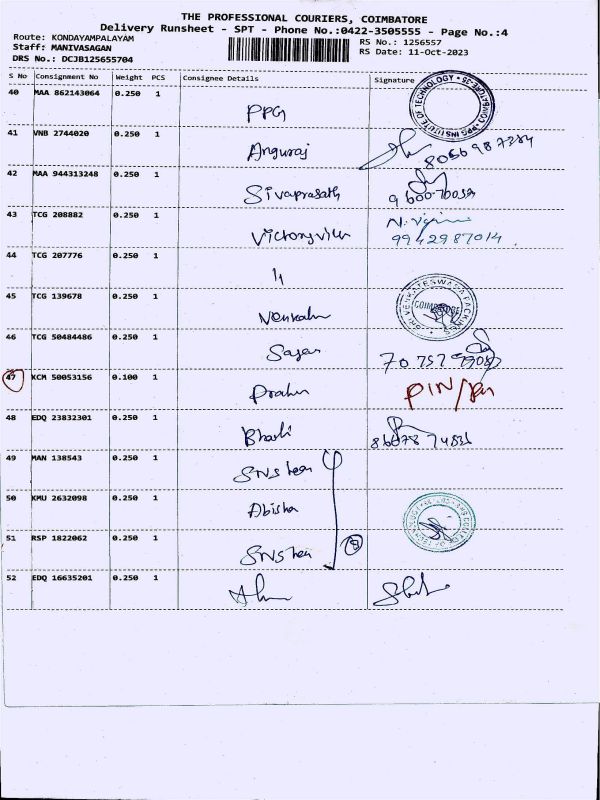 THE PROFESSIONAL COURIERS, COIMBATORE
Delivery Runsheet - SPT - Phone No.:0422-3505555 - Page No.:4
Route: KONDAYAMPALAYAM
RS No.: 1256557
Staff: MANIVASAGAN
RS Date: 11-Oct-2023
DRS No.: DCJB125655704
S No Consignment No Weight PCS Consignee Details Signature
40 MAA 862143064 0.250 1 PPG
PPG INSTITUTE OF TECHNOLOGY COIMBATORE-35
41 VNB 2744020 0.250 1 Anguraj 8056987384
42 MAA 944313248 0.250 1 Sivaprasath
43 TCG 208882 0.250 1 9942987014
44 TCG 207776 0.250 1 4
45 TCG 139678 0.250 1 COIMBATORE
46 TCG 50484486 0.250 1 Sagar
47 KCM 50053156 0.100 1 PIN/
48 EDQ 23832301 0.250 1
49 MAN 138543 0.250 1 SNS
50 KMU 2632098 0.250 1 Abisha
51 RSP 1822062 0.250 1 SNS
52 EDQ 16635201 0.250 1